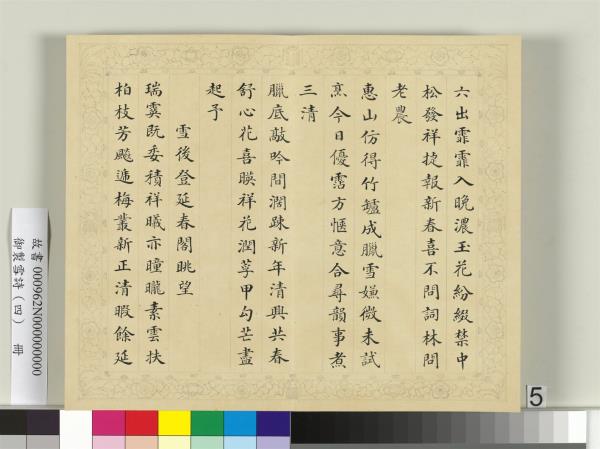 六出霏霏入晚濃玉花紛綴禁中
松發祥捷報新春喜不問詞林問
老農
惠山仿得竹罏成臘雪嫌微未試
烹今日優霑方愜意合尋韻事煮
三清
臘底敲吟間濶踈新年清興共春
舒心花喜暎祥花潤莩甲勾芒盡
起予
雪後登延春閣眺望
瑞霙既委積祥曦亦曈曨素雲扶
柏枝芳飈遞梅叢新正清暇餘延
故書000962N000000000
御製雪詩(四) 冊
5